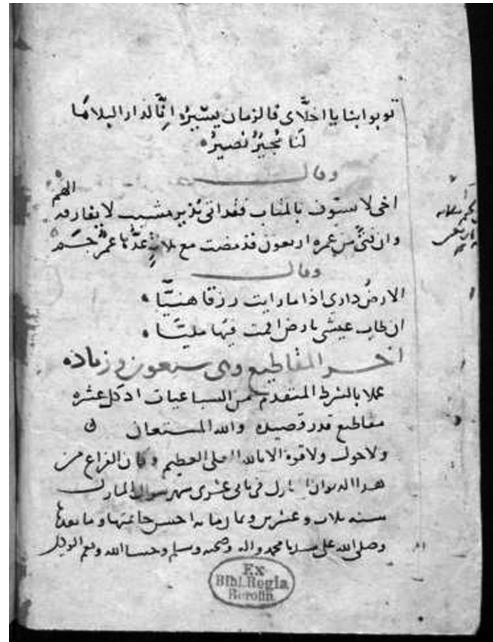 توبوا بنا يا اخلّاى فالزمان يسير انّا لدار البلا ما
لنا مجير نصير
وقال
اخى لا تسوّف بالمتاب فقد اتى نذير مشيب لا يفارقه الهم
وان فتى من عمره اربعون قد مضت مع ثلاث عدّها عمر جم
وقال
الارض دارى اذا ما رايت رزقا هنيّا
ان طاب عيشى بارض اقمت فيها مليّا
اخر المقاطيع وهى سبعون وزياده
عملا بالشرط المتقدم من السباعيات اذ كل عشره
مقاطيع قدر قصيده والله المستعان
ولا حول ولا قوة الا بالله العلى العظيم وكان الفراغ من
هذا الديوان المبارك فى ثانى عشرى شهر شوال المبارك
سنه ثلاث وعشرين وثمان مايه احسن خاتمتها وما بعدها
وصلى الله على سيدنا محمد واله وصحبه وسلم وحسبنا الله ونعم الوكيل
Ex
Bibl. Regia
Berolin.